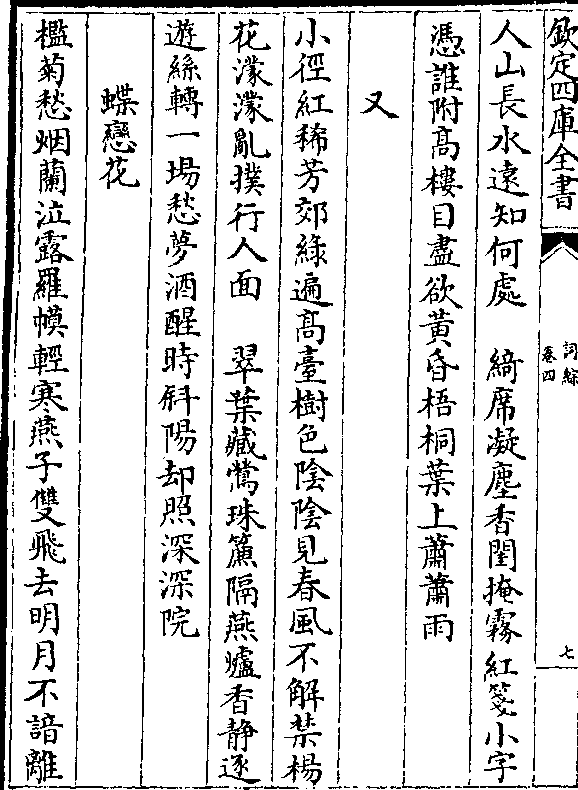 欽定四庫全書
詞綜
卷四
七
人山長水遠知何處　綺席凝塵香閨掩霧紅箋小字
憑誰附高樓目盡欲黃昏梧桐葉上蕭蕭雨
又
小徑紅稀芳郊綠遍高臺樹色陰陰見春風不解禁楊
花濛濛亂撲行人面　翠葉藏鶯珠簾隔燕爐香静逐
遊絲轉一場愁夢酒醒時斜陽却照深深院
蝶戀花
檻菊愁烟蘭泣露羅幙輕寒燕子雙飛去明月不諳離